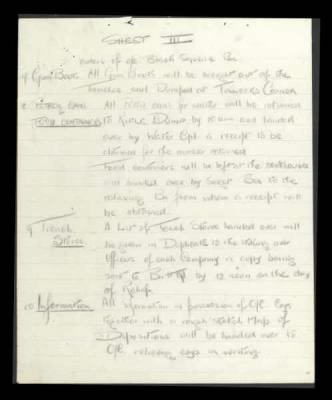 SHEET III
orders of o/c
Gum Boots All Gum Boots will be brought out of the
Trenches and Dumped at Corner
Petrol Cans All Petrol cans for water will be returned
Food Containers to Dump by 10 am and handed
over by Water Cpl. A receipt to be
obtained for the number returned
Food containers will be left at the cookhouse
and handed over by to the
relieving Bn from whom a receipt will
be obtained.
9 Trench Stores A List of Trench Stores handed over will
be given in Duplicate to the relieving
Officers of each Company a copy being
sent to by 12 noon on the day
of Relief.
10 Information All information in possession of O/C Coys
together with a rough sketch Map of
Dispositions will be handed over to
O/C relieving coys in writing.